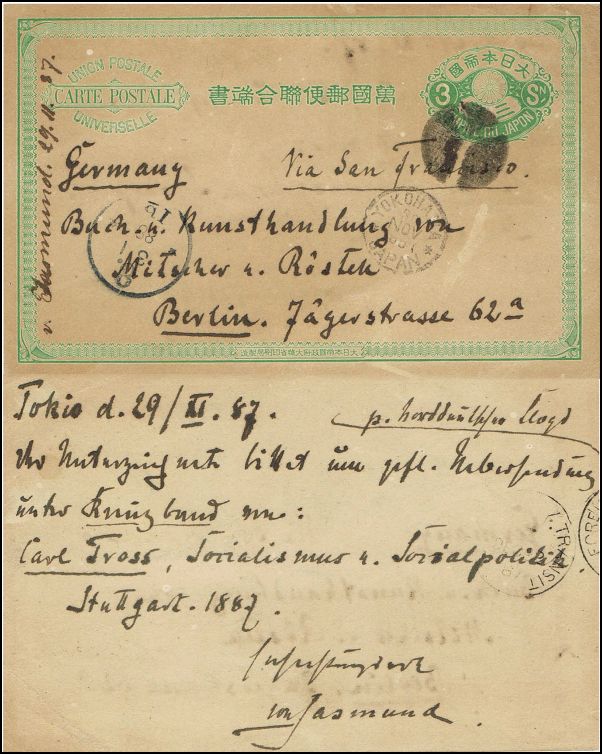 UNION POSTALE
CARTE POSTALE
UNIVERSELLE
書端合聯便郵國萬
大日本帝國
3 Sn 三
EMPIRE DU JAPON
v. Jasmund. 29.11.87.
Germany Via San Francisco.
YOKOHAMA
NOV
JAPAN
Buch- u. Kunsthandlung von
Mitscher u. Röstell
Berlin. Jägerstrasse 62a
Tokio d. 29/XI. 87.
p. Norddeutscher Lloyd
Der Unterzeichnete bittet um gefl. Uebersendung
unter Kreuzband von:
TRANSIT
Carl Tross, Socialismus u. Socialpolitik.
Stuttgart. 1887.
Hochachtungsvoll
von Jasmund.